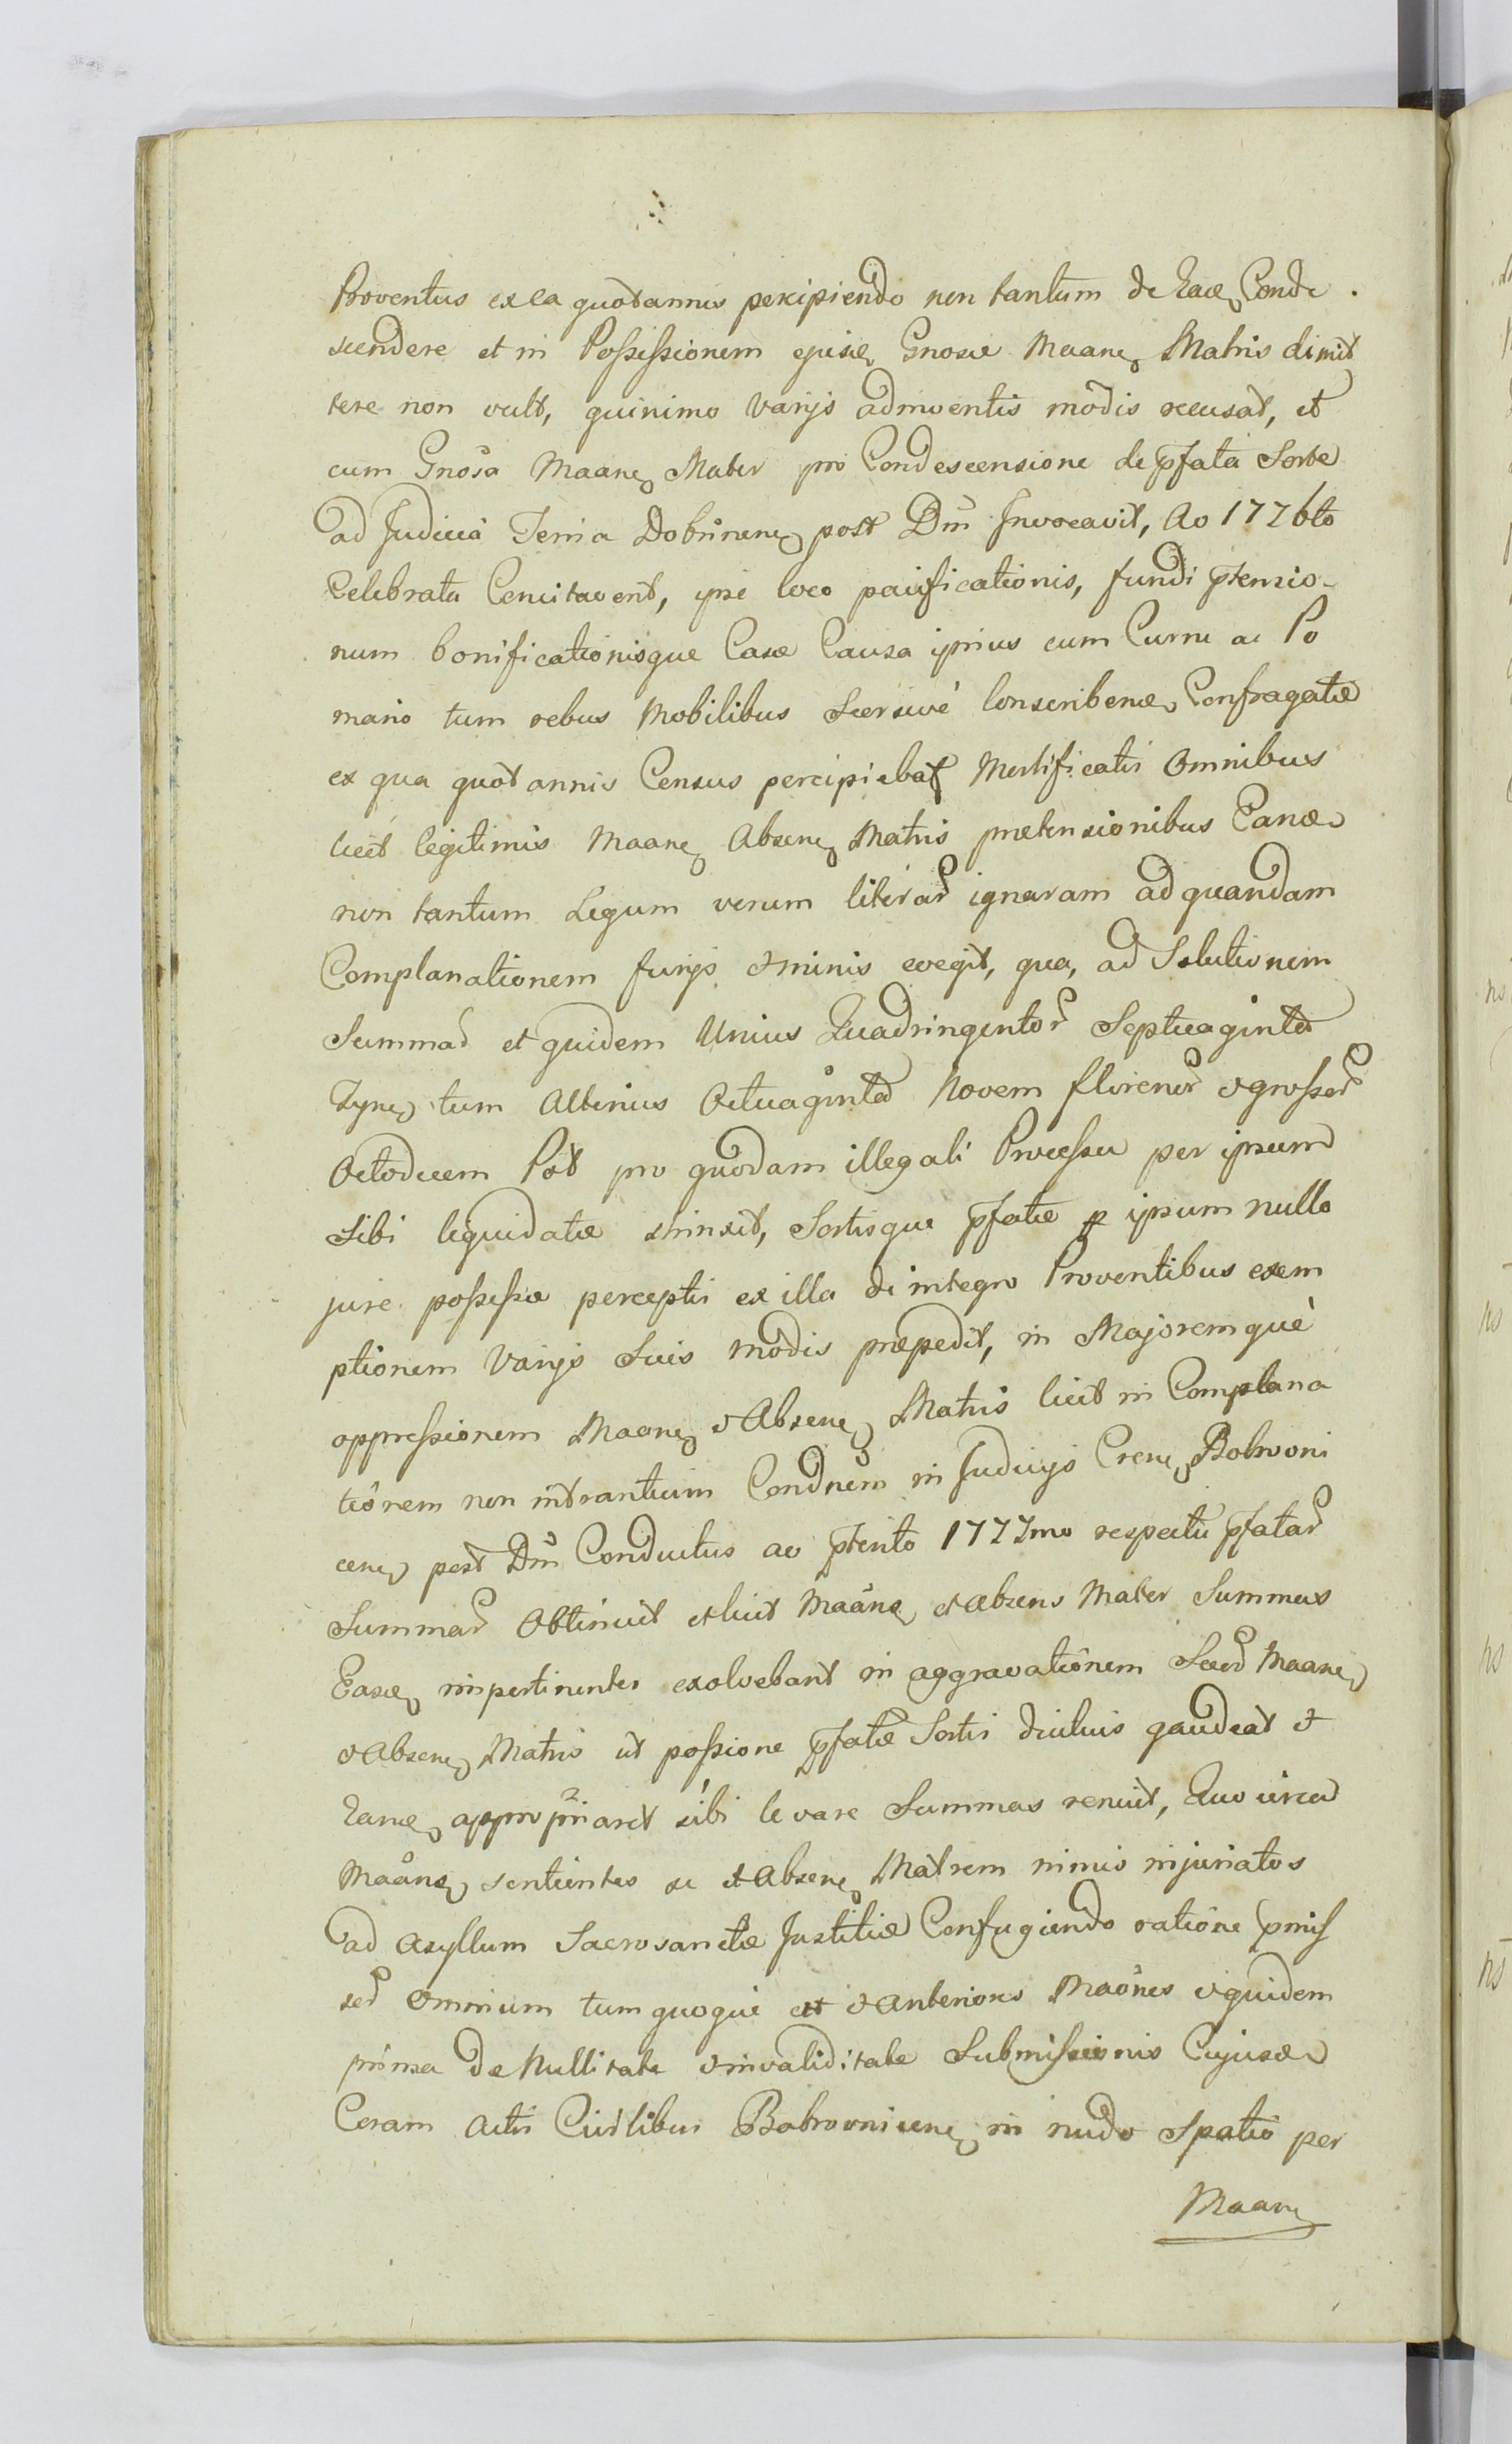 Proventus ex ea quotannis percipiendo non tantum de Ead Conde
scendere et in Possessionem ejusd Gnosæ Maane Matris dimit
tere non vult, quinimo varijs adinventis modis recusat, et
cum Gnosa Maane Mater pro Condescensione de pfata Sorte
ad Judicia Terria Dobrinen post Dm Invocavit, Ao 1776to
Celebrata Concitavent, ipse loco pacificationis, fundi ptensio-
num bonificationisque Casæ Causa ipsius cum Curru ac Po
mario tum rebus Mobilibus conscribend Confragatæ
ex qua quotannis Census percipiebat Mortificatis Omnibus
licet legitimis Maane Absene Matris prætensionibus Eand
non tantum Legum verum literar ignaram ad quandam
Complanationem furijs et minis coegit, qua, ad Solutionem
Summar et quidem Unius Quadringentor Septuaginta
Tyne tum Alterius Octuaginta Novem florenor et grossor
Octodecem Pol pro quodam illegali Processu per ipsum
sibi liquidatæ strinxit, Sortisque pfatæ p ipsum nullo
jure possessæ perceptis ex illa de integro Proventibus exem
ptionem varijs suis modis præpedit, in Majoremque
oppressionem Maane et Absene Matris licet in Complana
tionem non intrantium Condnem in Judicijs Crene Bobrovni
cene post Dm Conductus ao ptento 1777mo respectu pfatar
Summar Obtinuit et licet Maane et absens Mater Summas
Easd impertinentes exolvebant in aggravationem Maane
et Absene Matris ut possione pfatæ Sortis diutius gaudeat et
Eand appropriaret sibi levare Summas renuit, Quo circa
Maane sentientes se et Absene Matrem nimis injuriatos
ad Asyllum Sacrosanctæ Justitiæ Confugiendo ratione pmis
sor Omnium tum quoque et Anteriores Maones et quidem
prima De Nullitate et invaliditate Submissionis Cujusd
Coram Actis Civilibus Bobrovnicene in nudo Spatio per
Maane